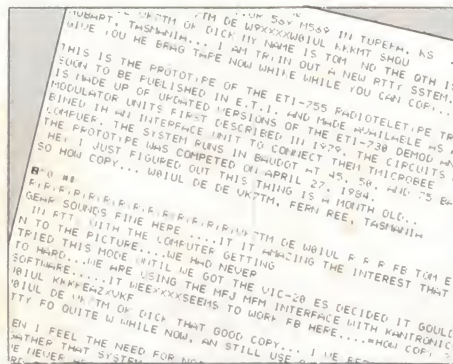 DE W9XXXXWB1UL KKKMT SHOU
HOBART, TASMANIA... I AM TRIIN OUT A NEW RTTY SSTEM.
GIUE YOU HE BRAG TAPE NOW WHILE WHILE YOU CAN COPI...
THIS IS THE PROTOTIPE OF THE ETI-755 RADIOTELETIPE TR
SOON TO BE PUBLISHED IN E.T.I. AND MADE AVAILAELE AS A
IS MADE UP OF UPDATED VERSIONS OF THE ETI-730 DEMOD AN
MODULATOR UNITS FIRST DESCRIBED IN 1979. THE CIRCUITS
BINED IN AN INTERFACE UNIT TO CONNECT THEM TMICROBEE
COMFUER. THE SYSTEM RUNS IN BAUDOT AT 45. 50, AND 75 BA
THE PROTOTYPE WAS COMPETED ON APRIL 27, 1984.
HEI I JUST FIGURED OUT THIS THING IS A MONTH OLD...
SO HOW COPY... WB1UL DE DE VK7TM, FERN REE, TASMANIA
DE WB1UL F R F FB TOM E
GEAR SOUNDS FINE HERE ....IT IT AMAZING THE INTEREST THAT
IN RTT WITH THE COMPUTER GETTING
N TO THE PICTURE....WE HAD NEVER
TRIED THIS MODE UNTIL WE GOT THE VIC-20 ES DECIDED IT GOULD
TO HARD...WE ARE USING THE MFJ MFM INTERFACE WITH KANTRONIC
SOFTWARE.....IT WEEXXXXSEEMS TO WORK FB HERE....=HOW COPY ?
OF DICK THAT GOOD COPY...
TTY FO QUITE W WHILE NOW, AN STILL USE
EN I FEEL THE NEED FOR
RATHER THAT SYSTEM